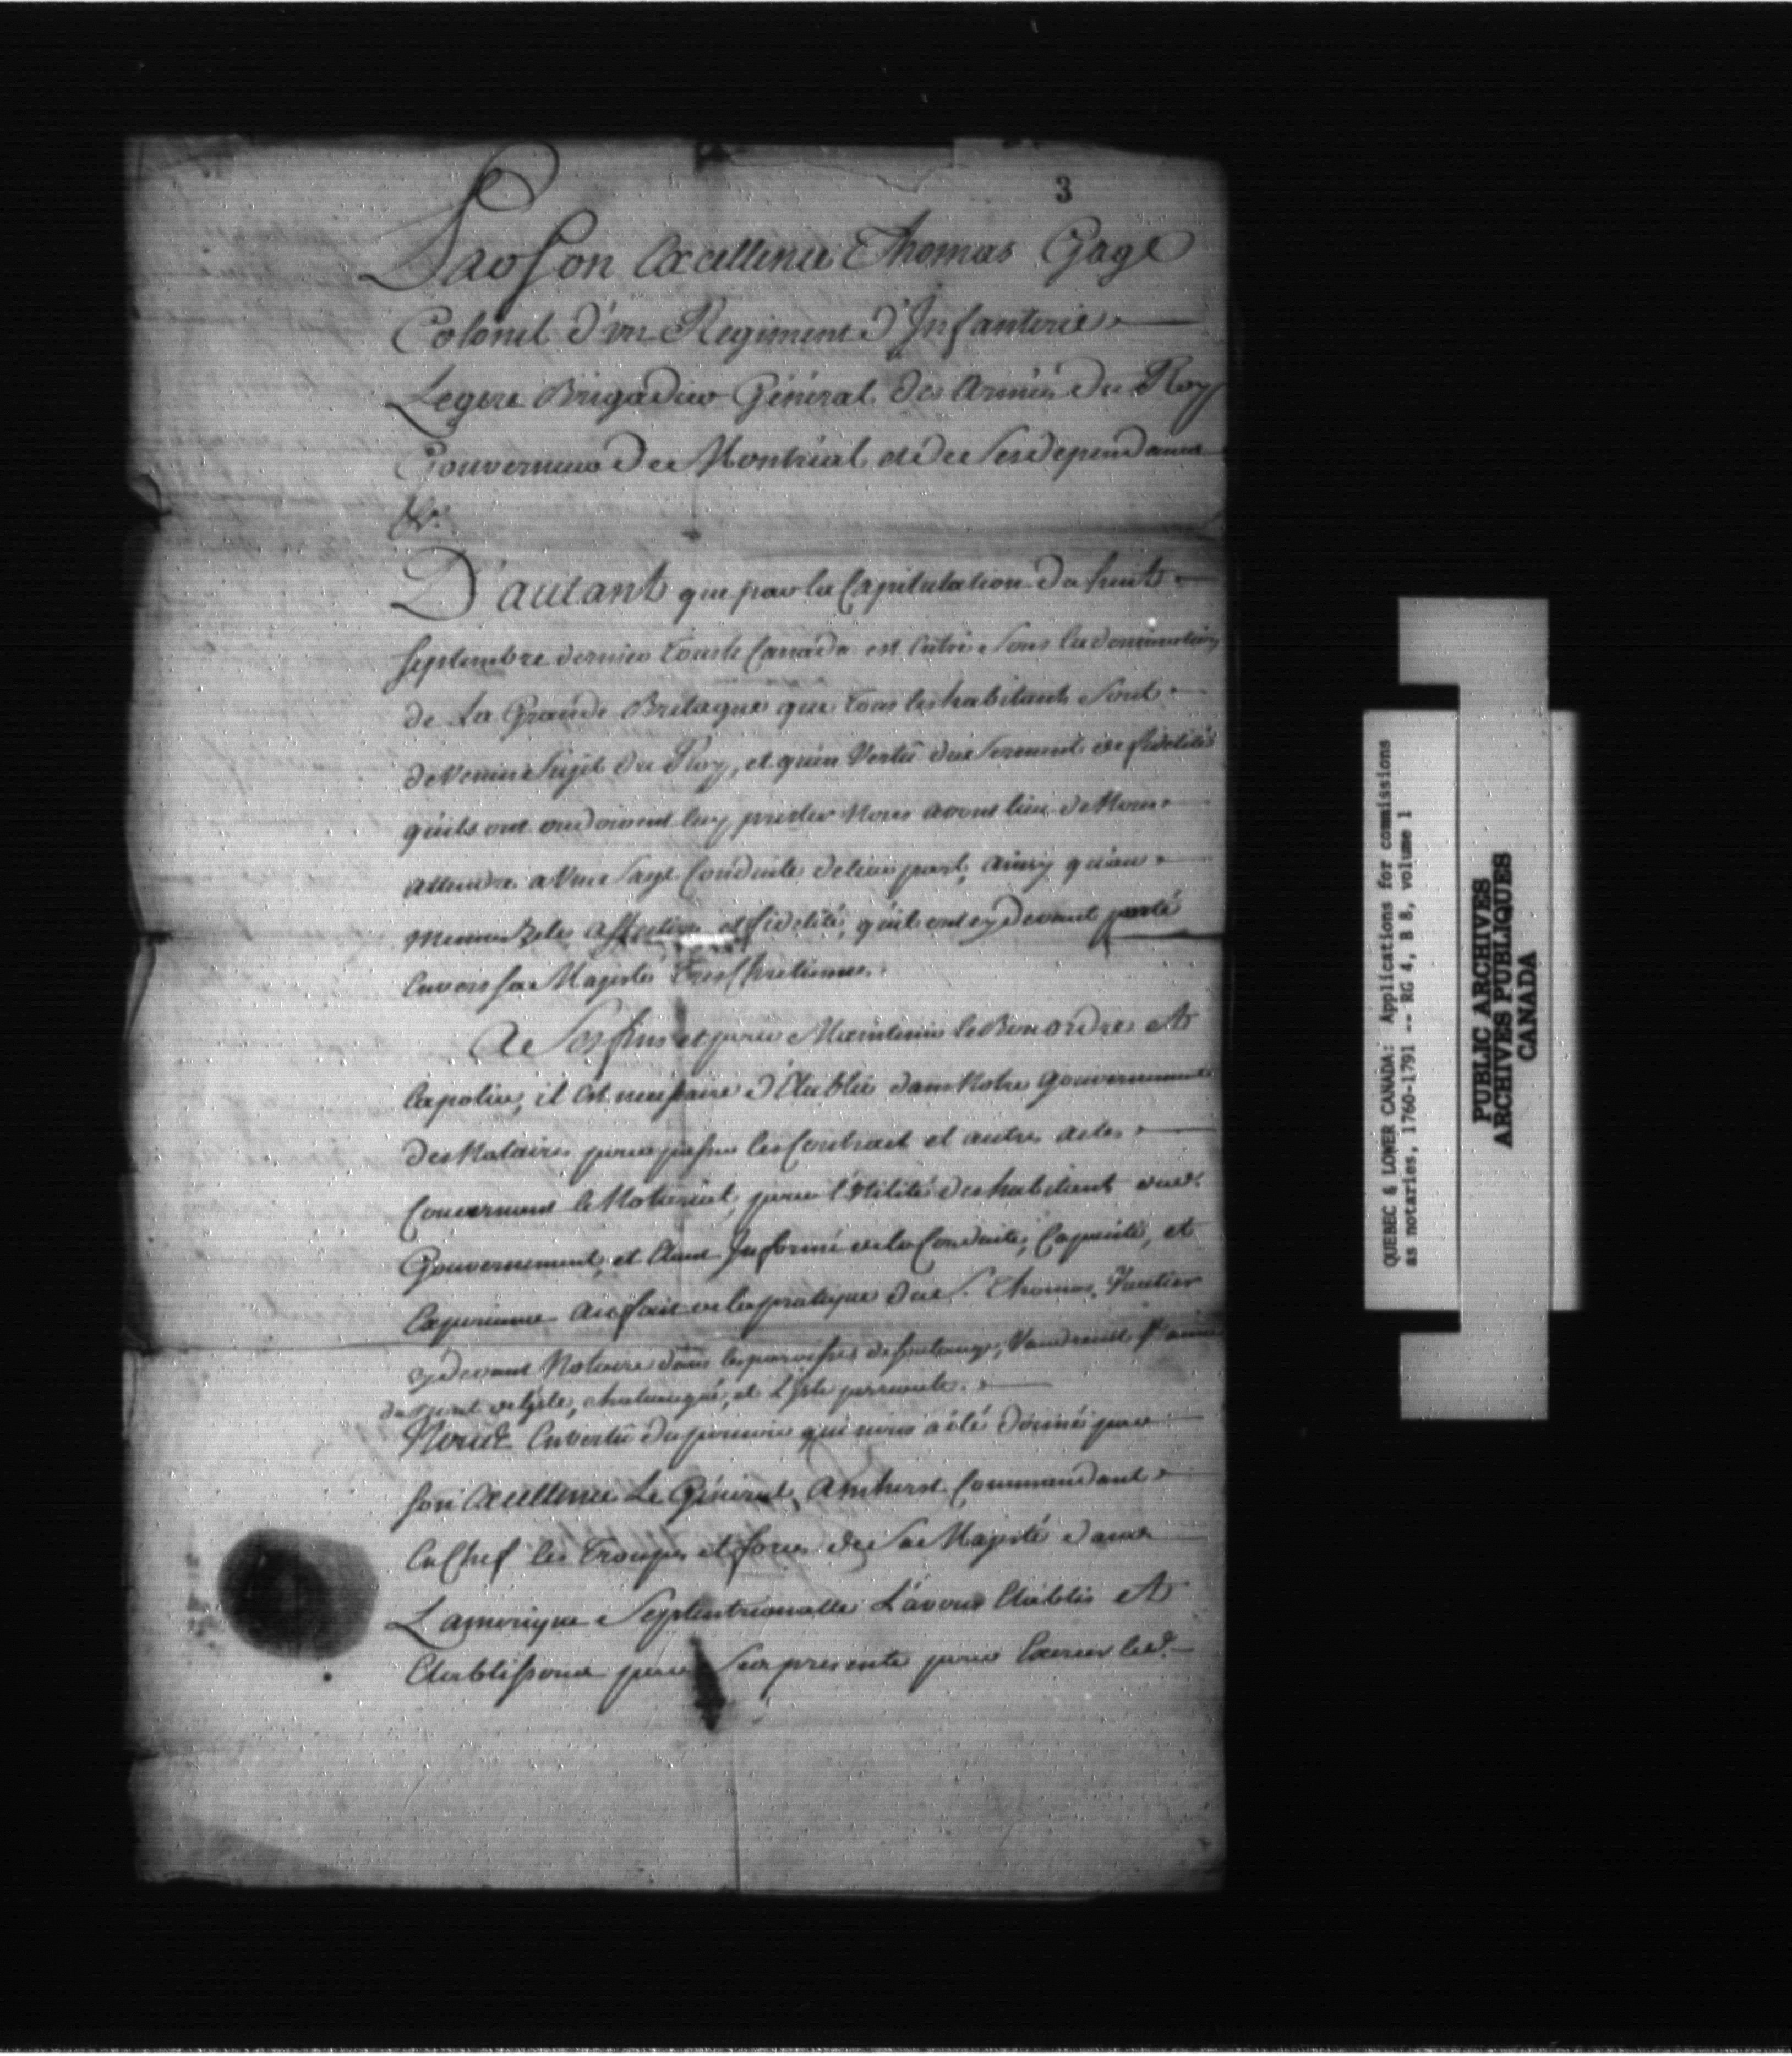 3
Par Son Excellence Thomas Gage
Colonel d'un Regiment d'Infanterie
Legere Brigadier Général des Armées du Roy
Gouverneur de Montréal et de ses dependances
&c.
D'autant que par la Capitulation du huit
septembre dernier tout le Canada est Entré sous la domination
de La Grande Bretagne que tous les habitants sont
devenus sujet du Roy, et qu'en Vertû du serment de fidelité
qu'ils ont ou doivent luy prester Nous avons lieu de Nous
attendre a Une sage Conduite de leur part, ainsy qu'au
mesmes Zele affection et fidelité, qu'il ont cy devant porté
Envers sa Majesté tres Chretienne.
A Ses fins et pour Maintenir le Bon ordre Et
la police, il Est necessaire d'Etablir dans Notre Gouvernement
des Notaires pour passer les Contract et autres actes
Concernant le Notariat, pour l'Utilité des habitant dud.
Gouvernement, et Etant Informé de la Conduite, Capacité, et
Experience au fait de la pratique du S. Thomas Vuatier
cy devant Notaire dans les paroisses de soulange, Vaudreuil Ste anne
du bout de l'isle, chateaugué, et L'isle perrault.
Nous En vertu du pouvoir qui nous a été donné par
son Excellence Le Général Amherst Commandant
En Chef les Troupes et forces de sa Majesté dans
L'amerique Septentrionalle L'avons Etablis Et
Etablissons par ces presente pour Exercer led.
QUEBEC & LOWER CANADA: Applications for commissions
as notaries, 1760-1791 -- RG 4, B 8, volume 1
PUBLIC ARCHIVES
ARCHIVES PUBLIQUES
CANADA